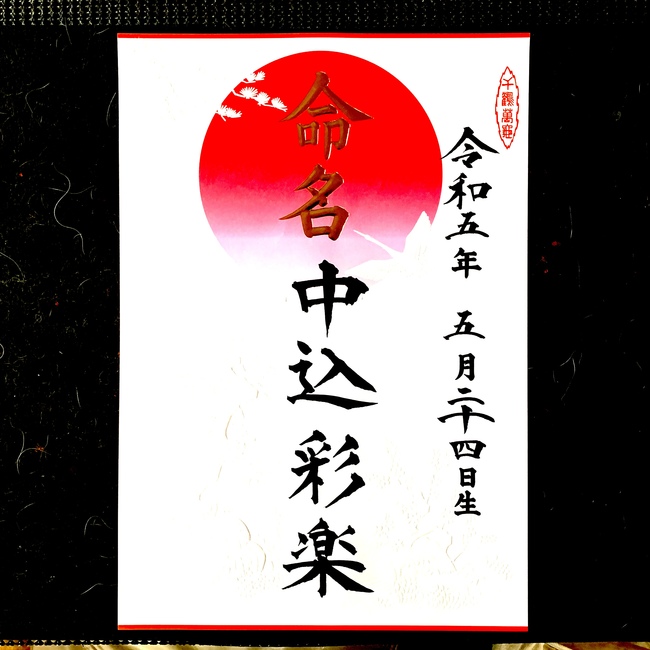 千客萬来
令和五年 五月二十四日生
命名
中込彩楽